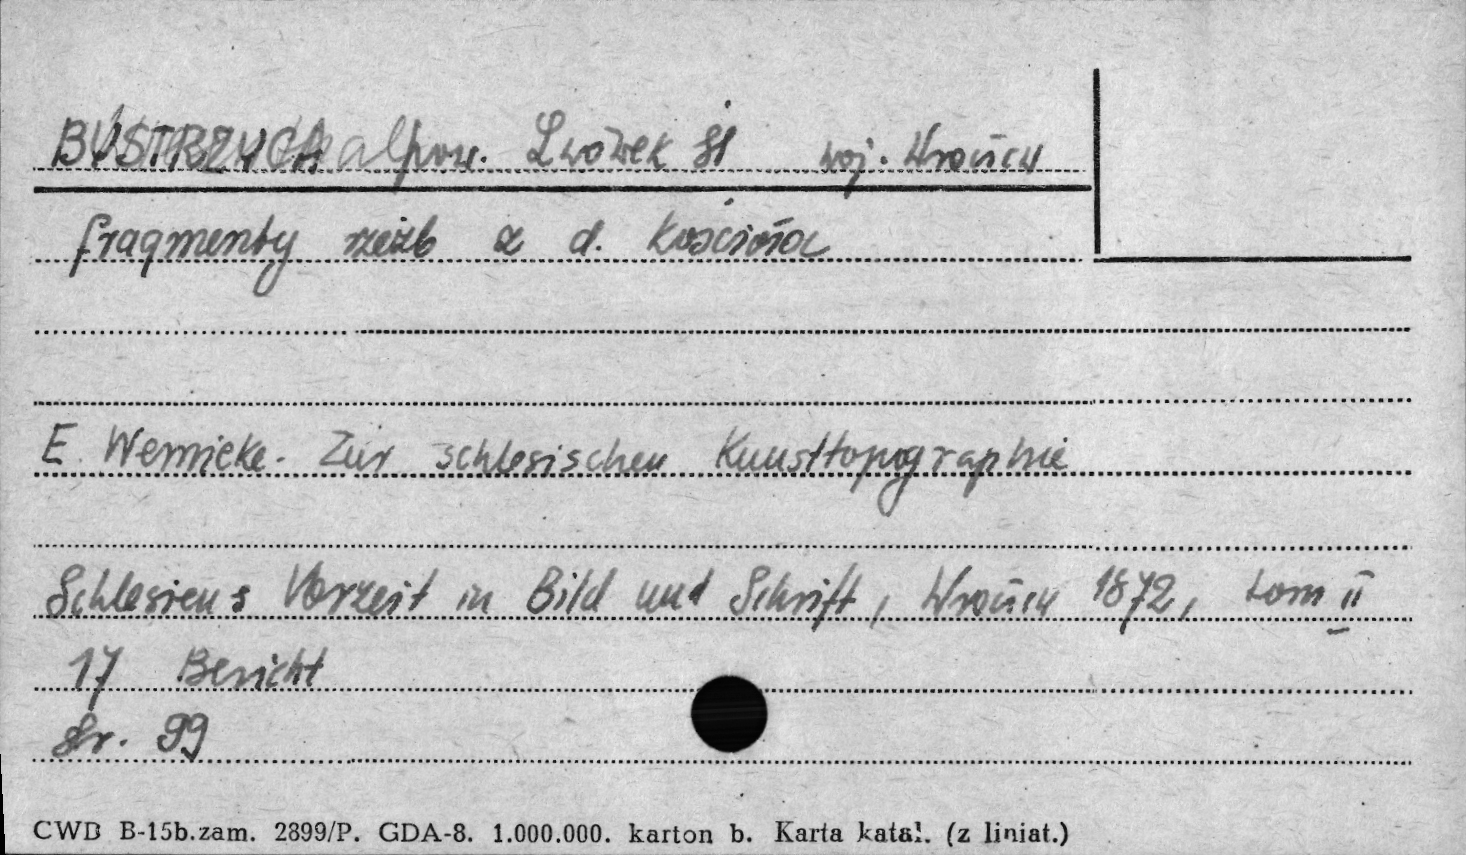 BYSTRZYCA pow. Lwówek Śl woj. Wrocław
fragmenty rzeźb z d. kościoła
E. Wernicke. Zur schlesischen Kunsttopographie
Schlesiens Vorzeit in Bild und Schrift, Wrocław 1872, tom II
17 Bericht
str. 99
CWD B-15b.zam. 2899/P. GDA-8. 1.000.000. karton b. Karta katal. (z liniat.)